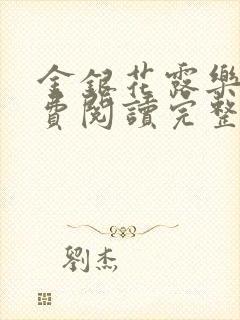 金銀花露樂
費閱讀完整
劉杰